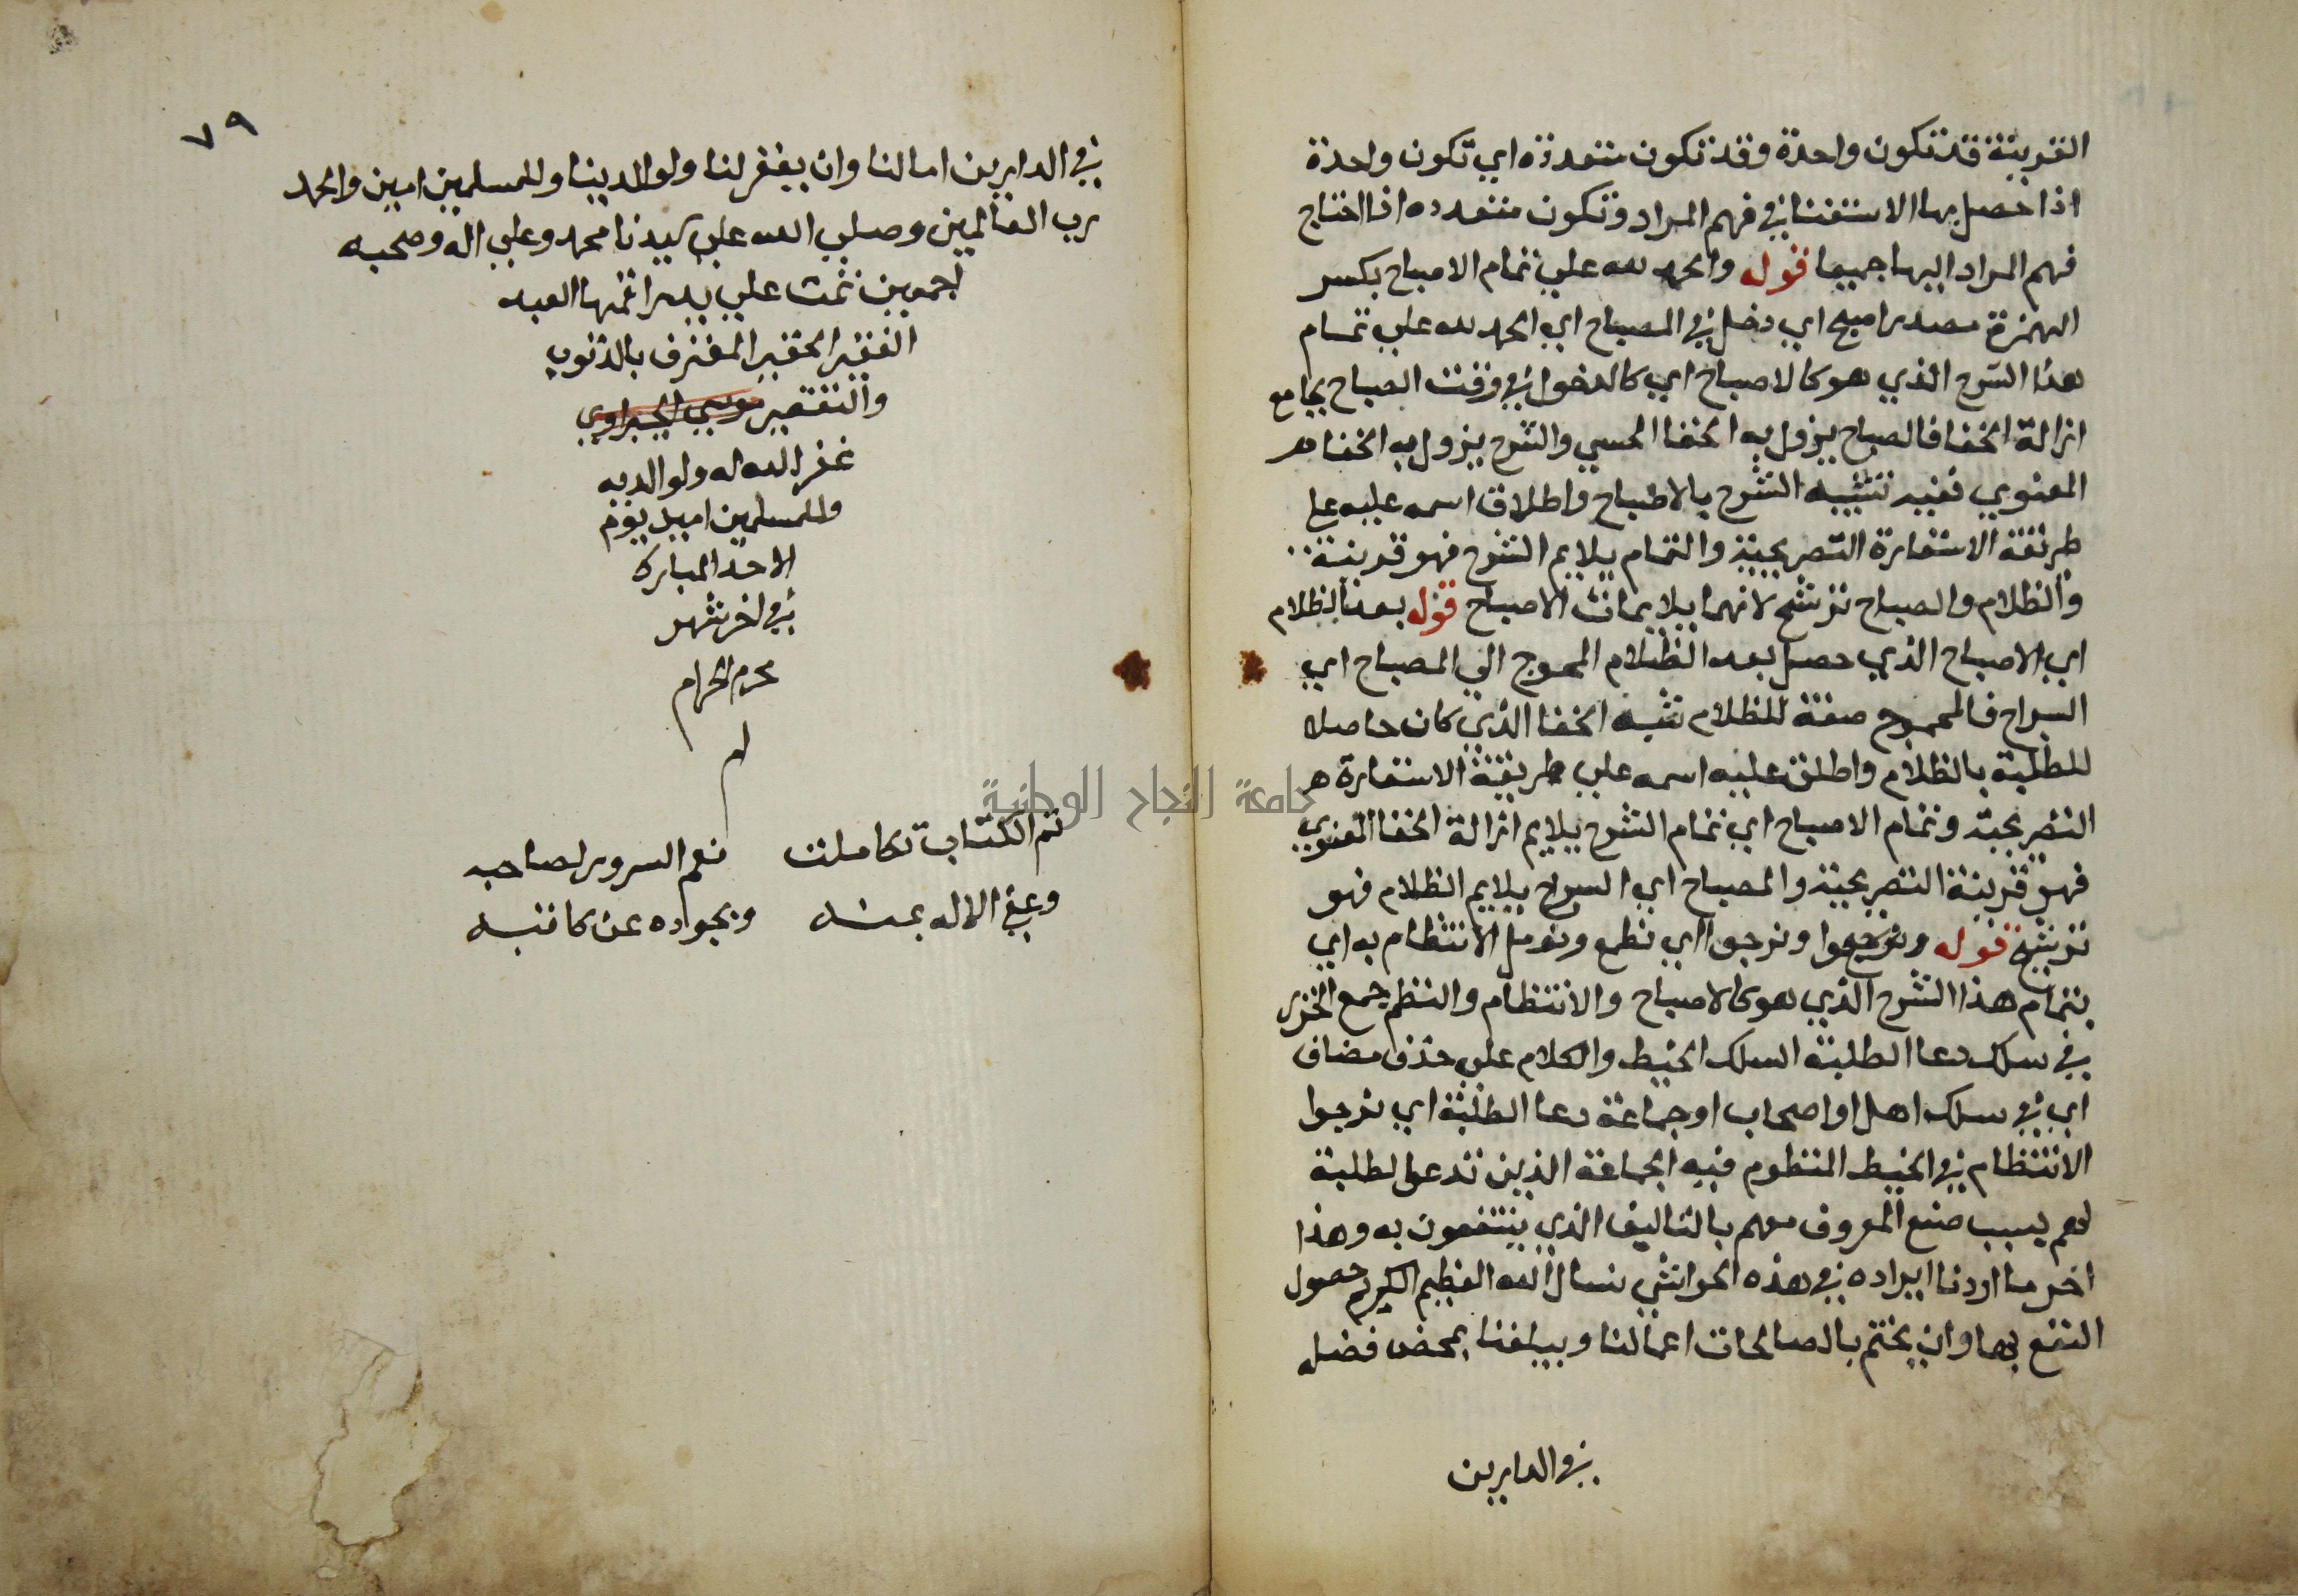 القرينة قد تكون واحدة وقد تكون متعددة اي تكون واحدة
اذا حصل بها الاستغنا في فهم المراد وتكون متعدده اذا احتاج
فهم المراد اليها جميعا قوله والحمد لله علي تمام الاصباح بكسر
الهمزة مصدر اصبح اي دخل في المصباح اي الحمد لله علي تمام
هذا الشرح الذي هو كالاصباح اي كالدخول في وقت الصباح بجامع
ازالة الخفا فالصباح يزول به الخفا الحسي والشرح يزول به الخفا
المعنوي ففيه تشبيه الشرح بالاصباح واطلاق اسمه عليه علي
طريقة الاستعارة التصريحية والتمام يلايم الشرح فهو قرينة
والظلام والصباح ترشح لانهما يلايمان الاصباح قوله بعد الظلام
اي الاصباح الذي حصل بعد الظلام المحوج الي المصباح اي
السراج فالمحوج صفة للظلام شبه الخفا الذي كان حاصلا
للطلبة بالظلام واطلق عليه اسمه علي طريقة الاستعارة
التصريحية وتمام الاصباح اي تمام الشرح يلايم ازالة الخفا المعنوي
فهو قرينة التصريحية والمصباح اي السراج يلايم الظلام فهو
ترشيح قوله ونرجوا ونرجوا اي نطمع ونومل الانتظام به اي
بتمام هذا الشرح الذي هو كالاصباح والانتظام والنظم جمع الخرز
في سلك دعا الطلبة السلك الخيط والكلام علي حذف مضاف
اي في سلك اهل او اصحاب او جماعة دعا الطلبة اي نرجوا
الانتظام في الخيط المنظوم فيه الجماعة الذين تدعوا لطلبة
لهم بسبب صنع المعروف معهم بالتاليف الذي ينتفعون به وهذا
اخر ما اردنا ايراده في هذه الحواشي نسال الله العظيم الكريم حصول
النفع بها وان يختم بالصالحات اعمالنا ويبلغنا بمحض فضله
في الدارين
٧٩
في الدارين امالنا وان يغفر لنا ولوالدينا وللمسلمين امين والحمد
رب العالمين وصلي الله علي سيدنا محمد وعلي اله وصحبه
اجمعين تمت علي يد راقمها العبد
الفقير الحقير المعترف بالذنوب
والتقصير موسي
غفر الله له ولوالديه
وللمسلمين امين يوم
الاحد المبارك
في اخر شهر
محرم الحرام
تم الكتاب تكاملت نعم السرور لصاحبه
وعفي الاله بمنه وبجوده عن كاتبه
جامعة النجاح الوطنية